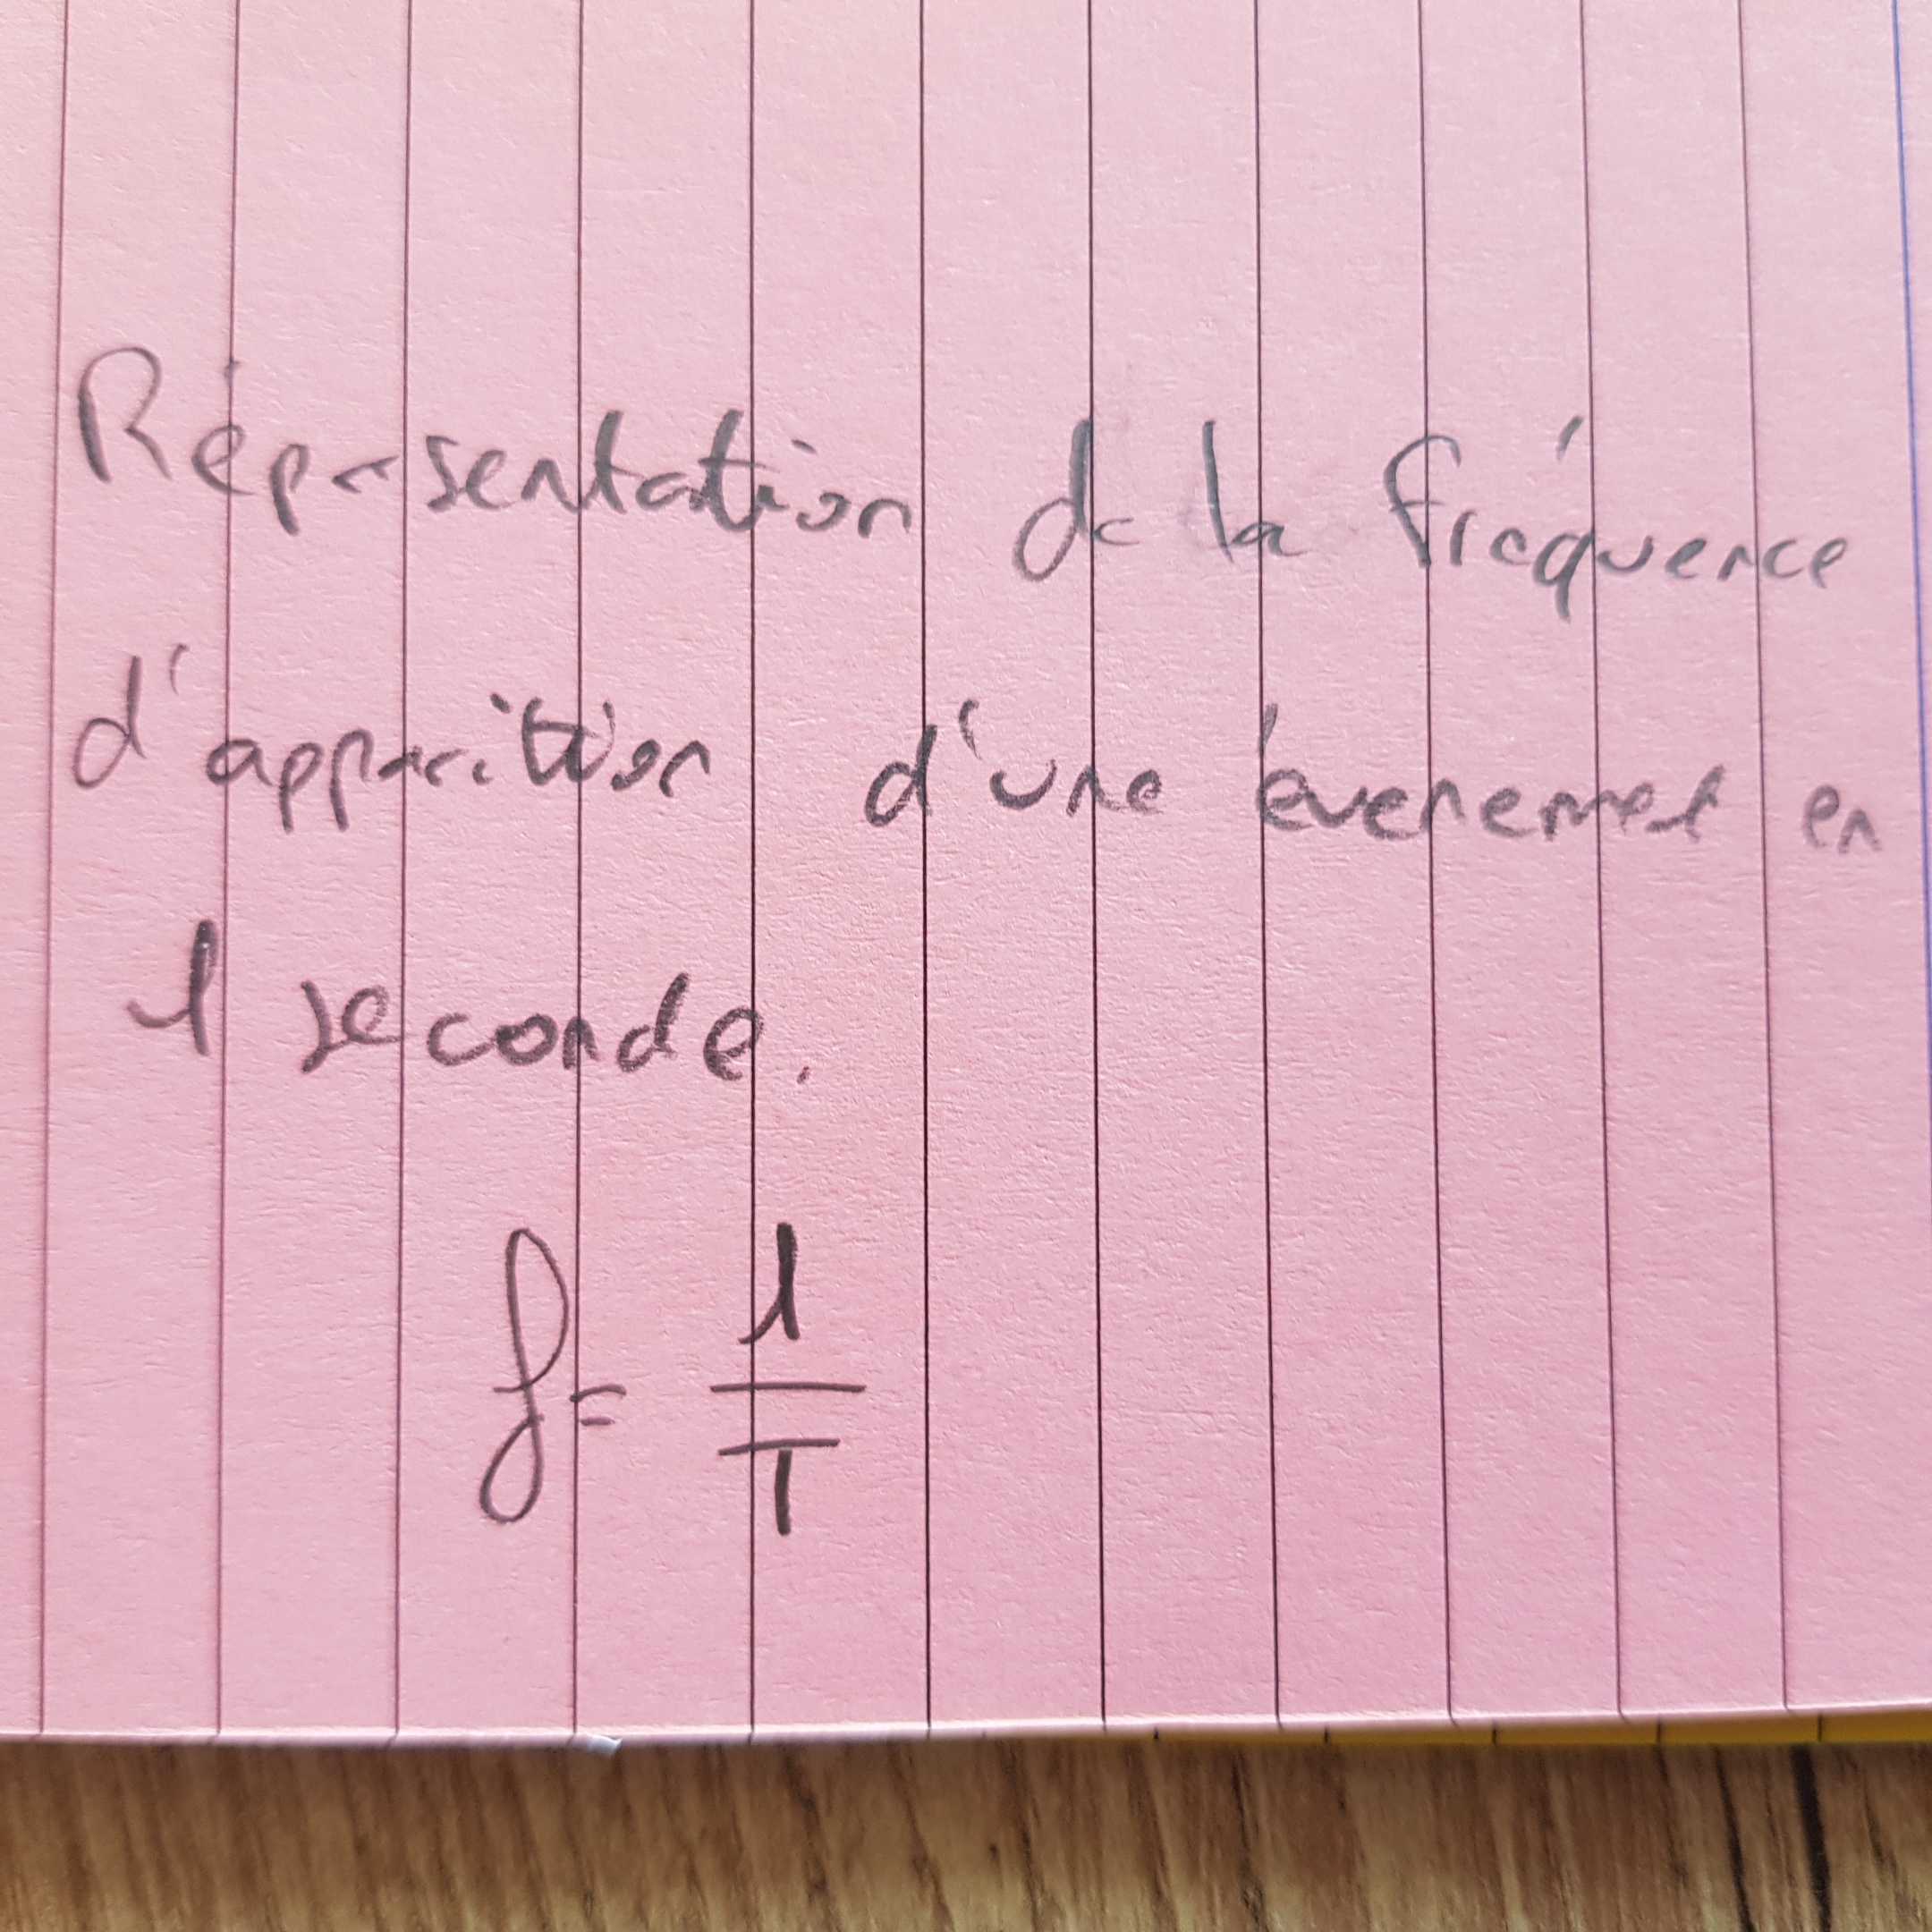 Réprsentation de la fréquence
d'apparition d'une évenement en
1 seconde.
f= 1/T